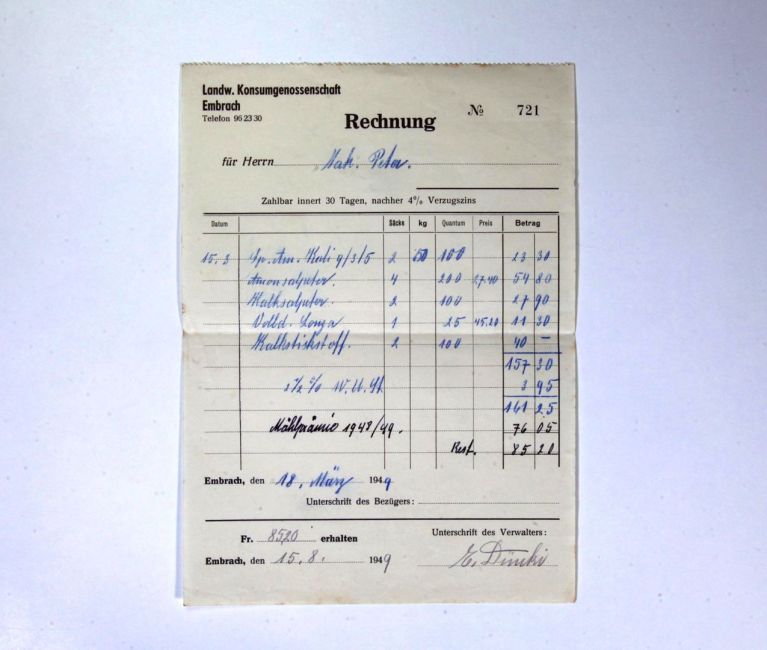 Landw. Konsumgenossenschaft
Embrach
Telefon 96 23 30
Rechnung
№ 721
für Herrn Peter.
Zahlbar innert 30 Tagen, nachher 4% Verzugszins
Datum Säcke kg Quantum Preis Betrag
15. 3 Sp. Am. Kali 4/3/5 2 50 100 23 30
Amonsalpeter. 4 200 27.40 54 80
Kalksalpeter. 2 100 27 90
Volld. Lonza 1 25 45.20 11 30
Kalkstickstoff. 2 100 40 –
157 30
2½ % W.U.St. 3 95
161 25
Mahlprämie 1948/49. 76 05
Rest. 85 20
Embrach, den 18. März 1949
Unterschrift des Bezügers:
Fr. 85.20 erhalten
Unterschrift des Verwalters:
Embrach, den 15. 8. 1949